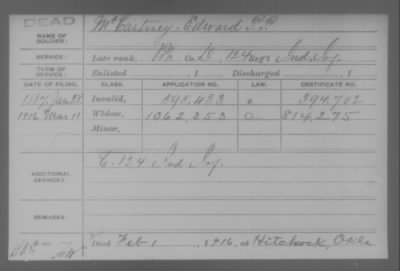 DEAD
NAME OF SOLDIER: McCartney, Edward P.
SERVICE: Late rank, Pvt Co. C, 124 Reg't Ind. Inf.
TERM OF SERVICE: Enlisted , 1 Discharged , 1
DATE OF FILING. CLASS. APPLICATION NO. LAW. CERTIFICATE NO.
Jan 28 Invalid, 394,702
1916 Mar 11 Widow, 1062,353 814,275
Minor,
C. 124 Ind Inf.
ADDITIONAL SERVICES:
REMARKS:
Died Feb 1, 1916, at Hitchcock, Okla